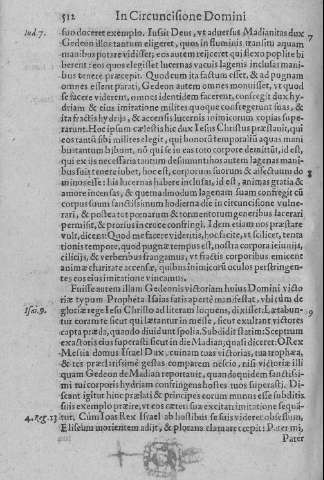 512 In Circuncisione Domini
Iud. 7. suo doceret exemplo. Iussit Deus, vt aduersus Madianitas dux 7
Gedeon illos tantum eligeret, quos in fluminis transitu aquam
manibus potare vidisset; eos autem reijceret qui flexo poplite bi
berent: eos quos elegisset lucernas vacuis lagenis inclusas mani-
bus tenere præcepit. Quod cum ita factum esset, & ad pugnam
omnes essent parati, Gedeon autem omnes monuisset, vt quod
se facere viderent, omnes identidem facerent, confregit dux hy-
driam & eius imitatione milites quoque confregerunt suas, &
ita fractis hydrijs, & accensis lucernis inimicorum copias supe-
rarunt. Hoc ipsum cælestis hic dux Iesus Christus præstauit, qui
eos tantū sibi milites elegit, qui bonorū temporaliū aquas mani
bus tantum bibunt, nō qui se in eas toto corpore demittūt, id est,
qui ex ijs necessaria tantum desumunt: hos autem lagenas mani-
bus suis tenere iubet, hoc est, corporum suorum & affectuum do
minos esse: his lucernas habere inclusas, id est, animas gratia & 8
amore incensas, & quemadmodum lagenam suam confregit cū
corpus suum sanctissimum hodierna die in circuncisione vulne-
rari, & postea tot pœnarum & tormentorum generibus lacerari
permisit, & prorsus in cruce confringi. Idem etiam nos præstare
vult, dicens: Quod me facere videritis, hoc facite, vt scilicet, tenta
tionis tempore, quod pugnæ tempus est, nostra corpora ieiunijs,
cilicijs, & verberibus frangamus, vt fractis corporibus emicent
animæ charitate accensæ, quibus inimicorū oculos perstringen-
tes eos eius imitatione vincamus.
Fuisse autem illam Gedeonis victoriam huius Domini victo
riæ typum Propheta Isaias satis apertè manifestat, vbi cùm de
Isai. 9. gloria & rege Iesu Christo ad literam loquens, dixisset: Lætabun- 9
tur coram te sicut qui lætantur in messe, sicut exultant victores
capta præda, quando diuidunt spolia. Subdidit statim: Sceptrum
exactoris eius superasti sicut in die Madian; quasi diceret: O Rex
Messia domus Israel Dux, cuinam tuas victorias, tua trophæa,
& tes præclarissimè gestas comparem nescio, nisi victoriæ illi
quam Gedeon de Madian reportauit, quandoquidem sanctissi-
mi tui corporis hydriam confringens hostes tuos superasti. Di-
scant igitur hinc prælati & principes eorum munus esse subditis
suis exemplo præire, vt eos cæteri sua excitati imitatione sequā-
4. Reg. 13 tur. Cùm Ioas Rex Israel ab hostibus se satis videret obsessum,
Eliseum morientem adijt, & plorans clamare cœpit: Pater mi,
Pater